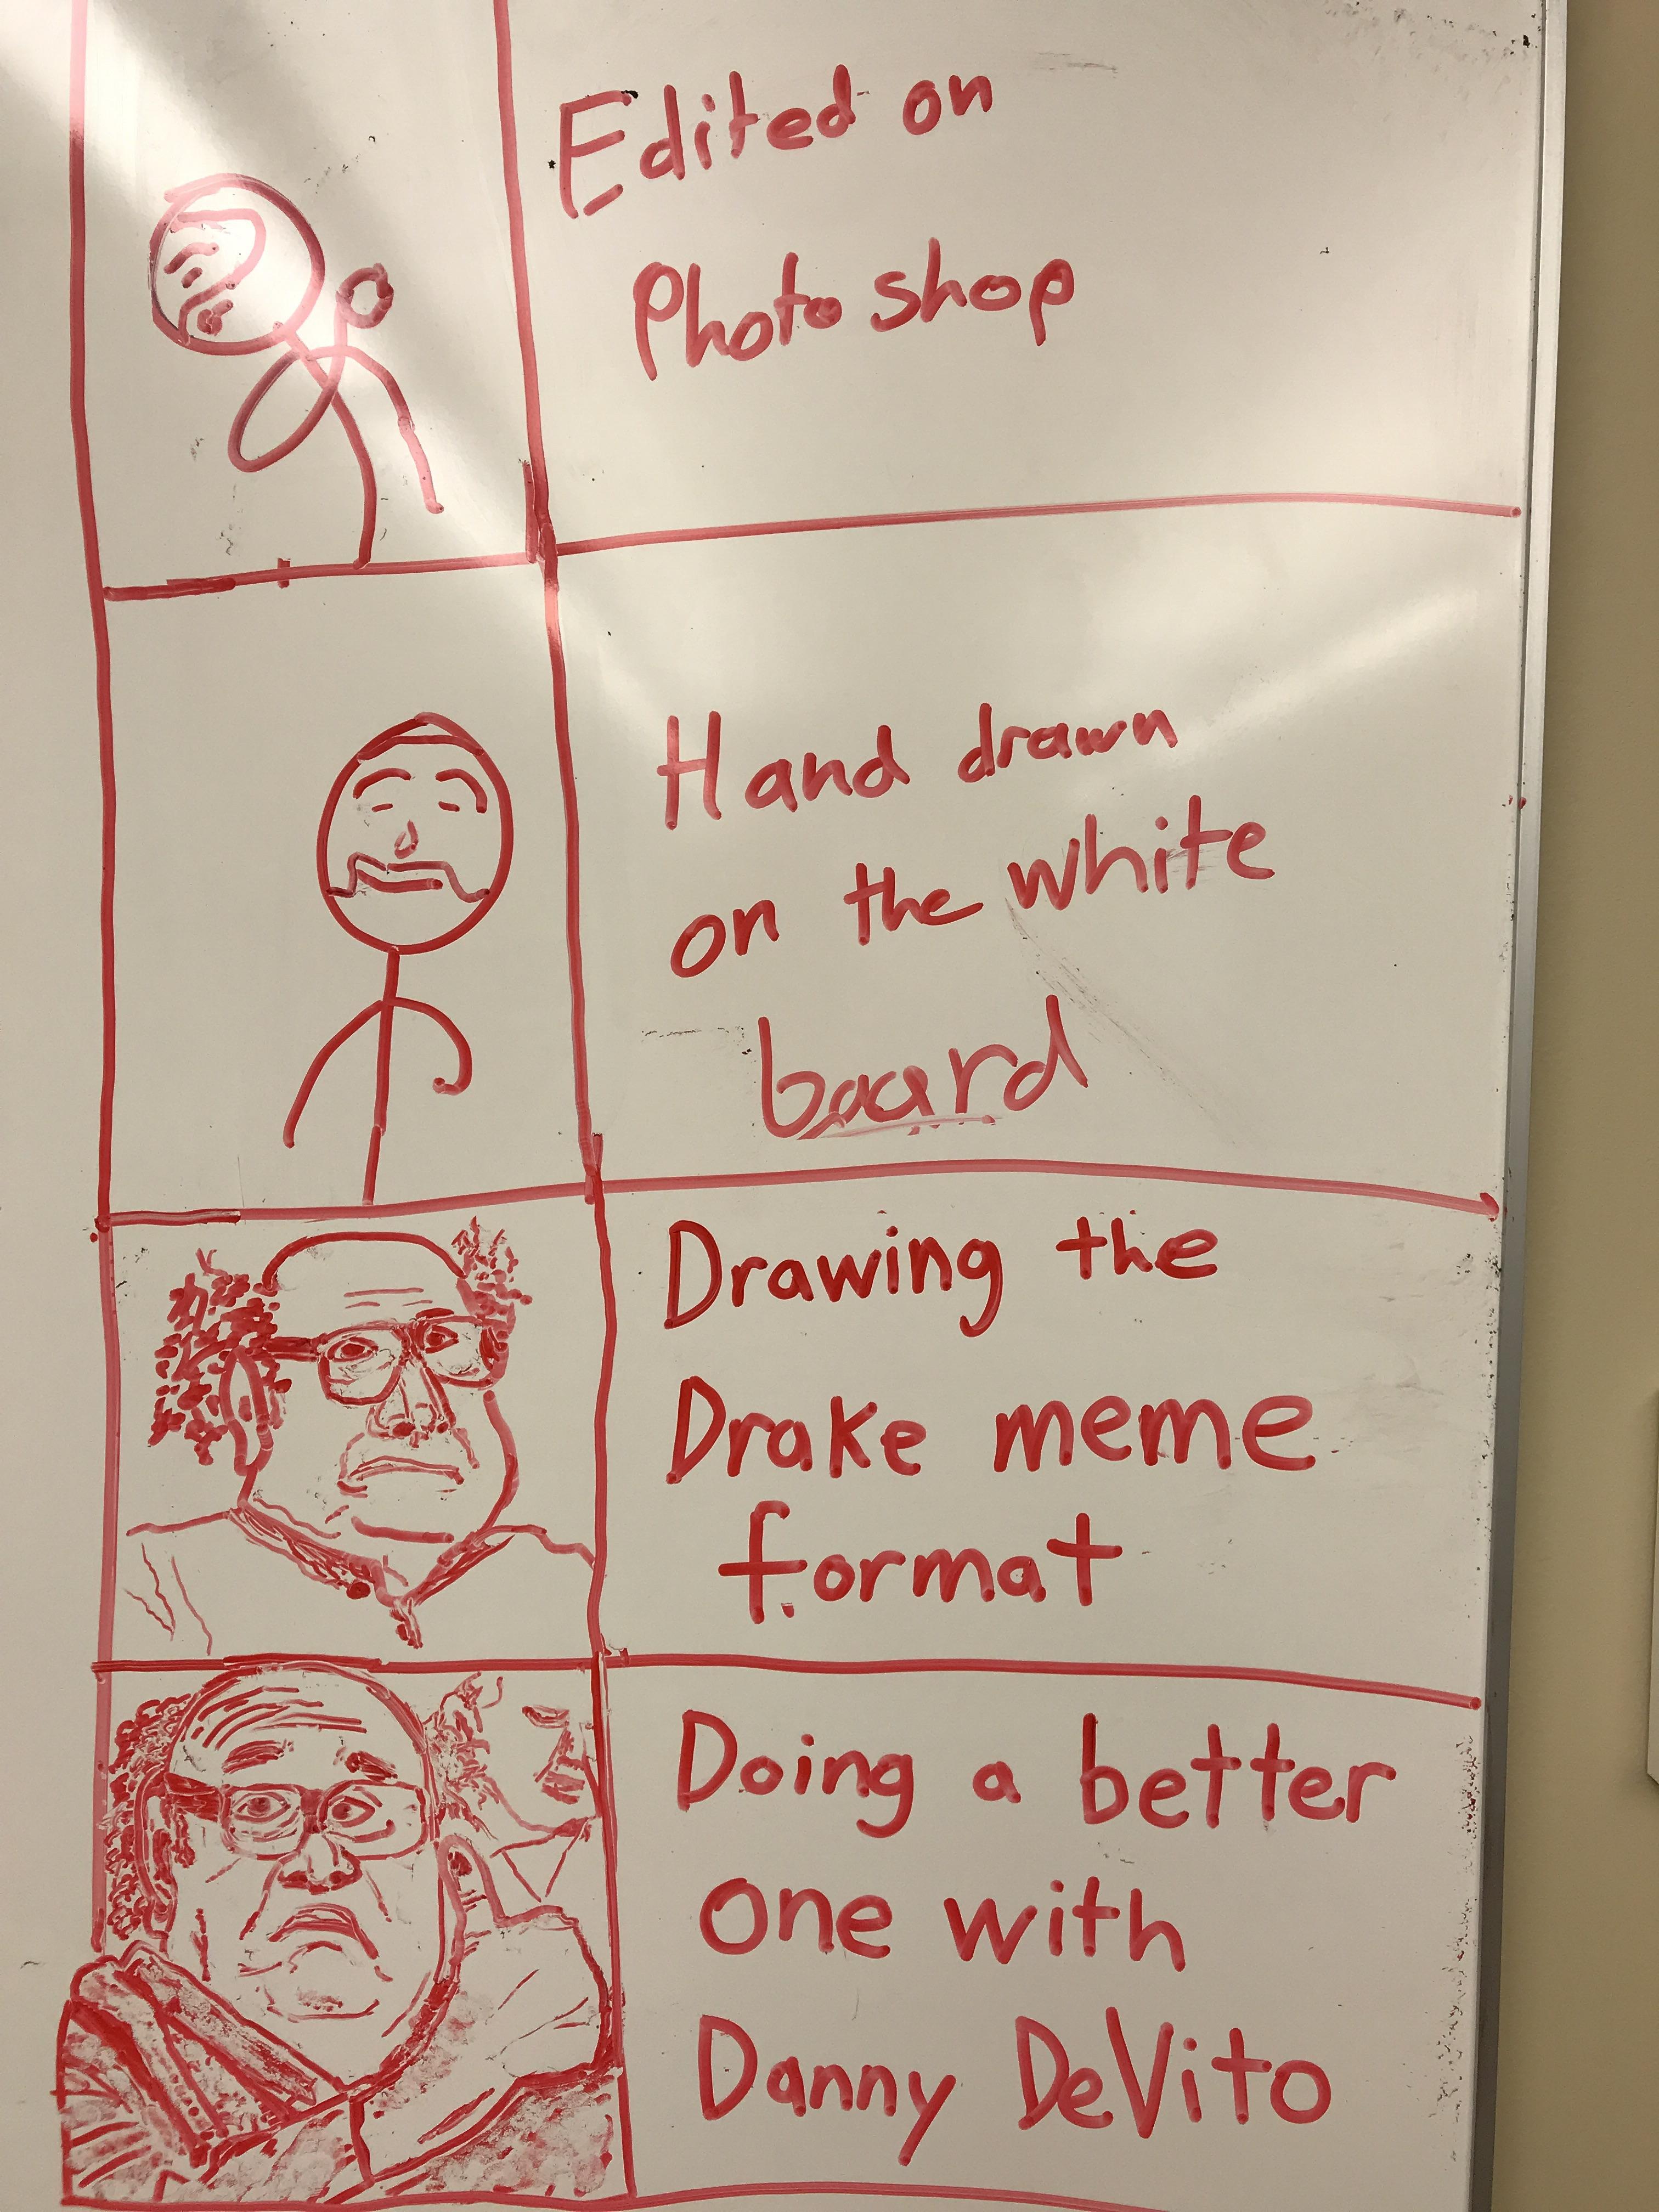 Edited on
Photoshop
Hand drawn
on the white
board
Drawing the
Drake meme
format
Doing a better
one with
Danny DeVito